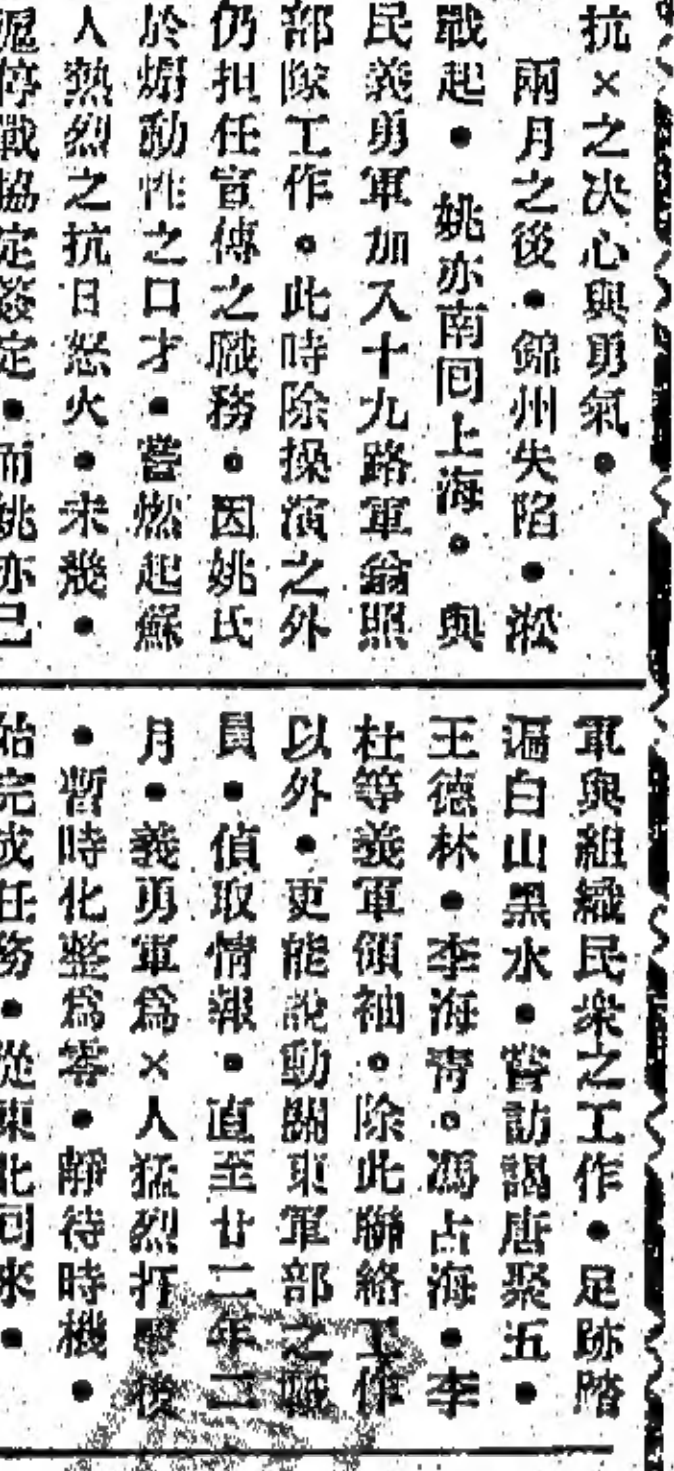 抗×之决心與勇氣●
兩月之後●錦州失陷●淞
戰起●姚亦南囘上海。與
民義勇軍加入十九路軍翁照
部隊工作。此時除操演之外
仍担任宣傳之職務。因姚氏
於煽動性之口才●嘗燃起蘇
人熱烈之抗日怒火●未幾●
滬停戰協定簽定●而姚亦已
軍與組織民衆之工作●足跡踏
遍白山黑水●嘗訪謁唐聚五●
王德林●李海青。馮占海●李
杜等義軍領袖。除此聯絡工作
以外●更能說動關東軍部之職
員●偵取情報●直至廿二年二
月●義勇軍爲×人猛烈打擊後
●暫時化整爲零●靜待時機●
始完成任務●從東北囘來●